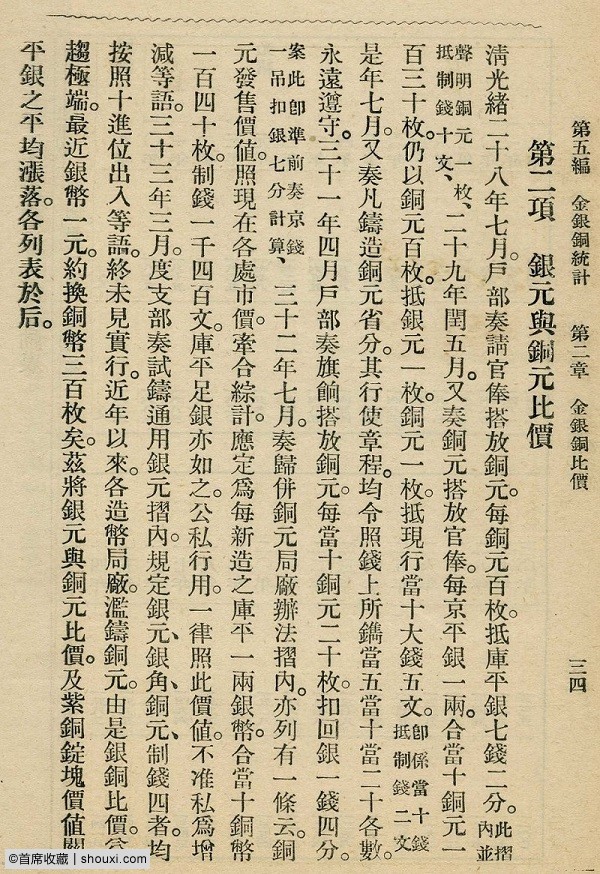 第五編　金銀銅統計　第二章　金銀銅比價　三四
第二項　銀元與銅元比價
清光緒二十八年七月。戶部奏請官俸搭放銅元。每銅元百枚。抵庫平銀七錢二分。此摺內並
聲明銅元一枚、抵制錢十文、二十九年閏五月。又奏銅元搭放官俸。每京平銀一兩。合當十銅元一
百三十枚。仍以銅元百枚。抵銀元一枚。銅元一枚。抵現行當十大錢五文。卽係當十錢抵制錢二文
是年七月。又奏凡鑄造銅元省分。其行使章程。均令照錢上所鐫當五當十當二十各數。
永遠遵守。三十一年四月戶部奏旗餉搭放銅元。每當十銅元二十枚。扣回銀一錢四分。
案此卽準前奏京錢一吊扣銀七分計算、三十二年七月。奏歸併銅元局廠辦法摺內。亦列有一條云。銅
元發售價值。照現在各處市價。牽合綜計。應定爲每新造之庫平一兩銀幣。合當十銅幣
一百四十枚。制錢一千四百文。庫平足銀亦如之。公私行用。一律照此價值。不准私爲增
減等語。三十三年三月。度支部奏試鑄通用銀元摺內。規定銀元、銀角、銅元、制錢四者。均
按照十進位出入等語。終未見實行。近年以來。各造幣局廠。濫鑄銅元。由是銀銅比價。益
趨極端。最近銀幣一元。約換銅幣三百枚矣。茲將銀元與銅元比價。及紫銅錠塊價值關
平銀之平均漲落。各列表於后。
@首席收藏 | shouxi.com